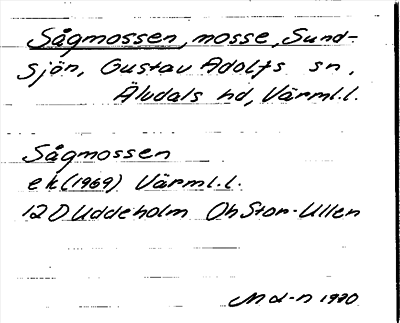 Sågmossen, mosse, Sund-
sjön, Gustav Adolfs sn,
Älvdals hd, Värml.l.
Sågmossen
ek (1969) Värml.l.
12D Uddeholm Oh Stor-Ullen
Md-n 1990